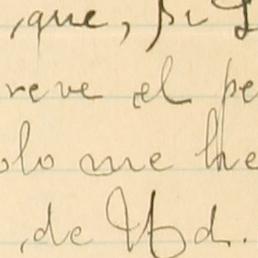 , que, si
reve el pe
olo me he
, de Ud.